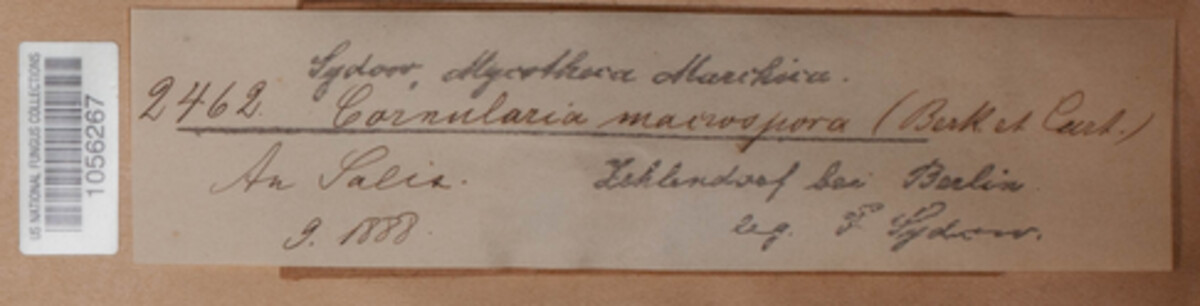 US NATIONAL FUNGUS COLLECTIONS
1056267
Sydow, Mycotheca Marchica.
2462. Cornularia macrospora (Berk et Curt.)
An Salix. Zehlendorf bei Berlin
9. 1888. leg. P. Sydow.